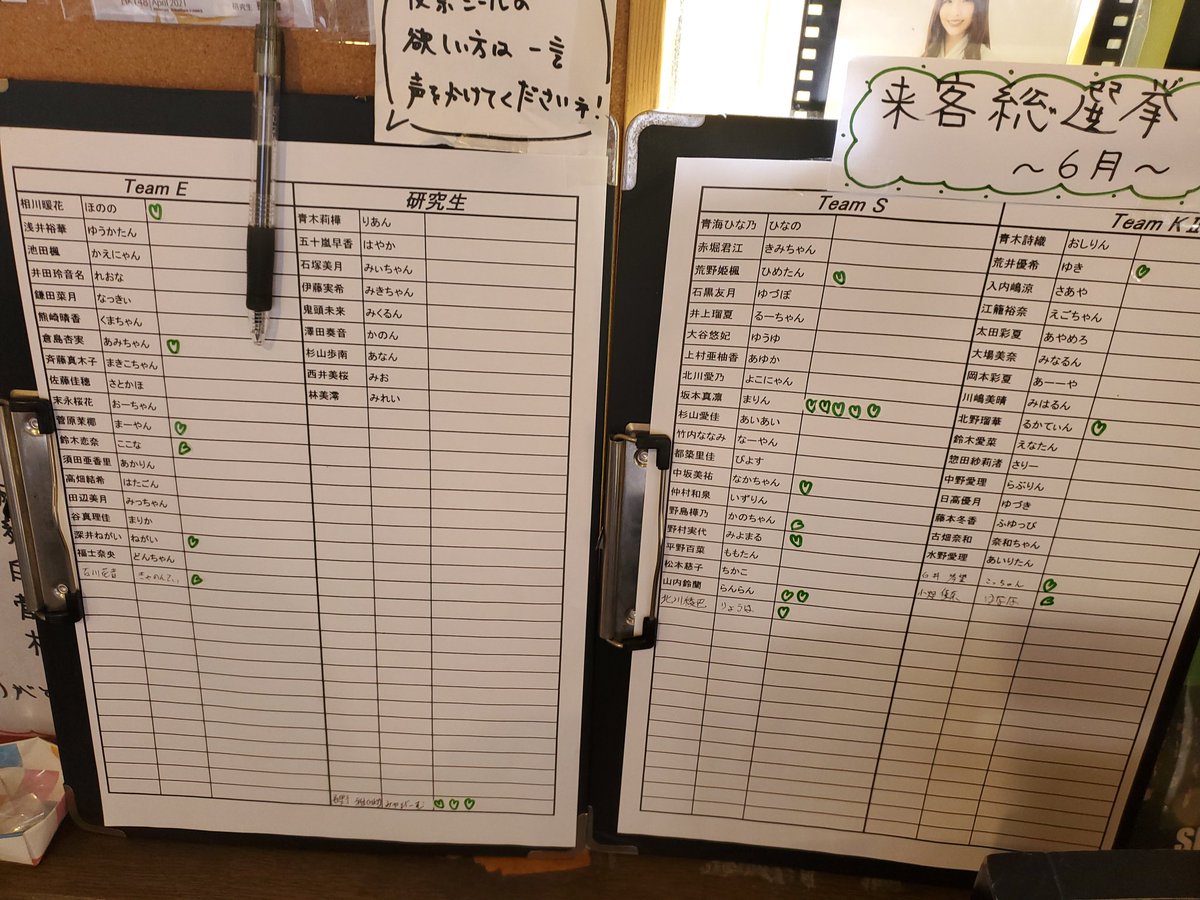 April 2021
欲しい方は一言
声をかけてくださいネ!
来客総選挙
～6月～
Team E
相川暖花 ほのの
浅井裕華 ゆうかたん
池田楓 かえにゃん
井田玲音名 れおな
鎌田菜月 なっきぃ
熊崎晴香 くまちゃん
倉島杏実 あみちゃん
斉藤真木子 まきこちゃん
佐藤佳穂 さとかほ
末永桜花 おーちゃん
菅原茉椰 まーやん
鈴木恋奈 ここな
須田亜香里 あかりん
高畑結希 はたごん
田辺美月 みっちゃん
谷真理佳 まりか
深井ねがい ねがい
福士奈央 どんちゃん
研究生
青木莉樺 りあん
五十嵐早香 はやか
石塚美月 みぃちゃん
伊藤実希 みきちゃん
鬼頭未来 みくるん
澤田奏音 かのん
杉山歩南 あなん
西井美桜 みお
林美澪 みれい
Team S
青海ひな乃 ひなの
赤堀君江 きみちゃん
荒野姫楓 ひめたん
石黒友月 ゆづぽ
井上瑠夏 るーちゃん
大谷悠妃 ゆうゆ
上村亜柚香 あゆか
北川愛乃 よこにゃん
坂本真凛 まりん
杉山愛佳 あいあい
竹内ななみ なーやん
都築里佳 ぴよす
中坂美祐 なかちゃん
仲村和泉 いずりん
野島樺乃 かのちゃん
野村実代 みよまる
平野百菜 ももたん
松本慈子 ちかこ
山内鈴蘭 らんらん
北川綾巴 りょうは
Team KⅡ
青木詩織 おしりん
荒井優希 ゆき
入内嶋涼 さあや
江籠裕奈 えごちゃん
太田彩夏 あやめろ
大場美奈 みなるん
岡本彩夏 あーーや
川嶋美晴 みはるん
北野瑠華 るかてぃん
鈴木愛菜 えなたん
惣田紗莉渚 さりー
中野愛理 らぶりん
日高優月 ゆづき
藤本冬香 ふゆっぴ
古畑奈和 奈和ちゃん
水野愛理 あいりたん
白井 こっちゃん